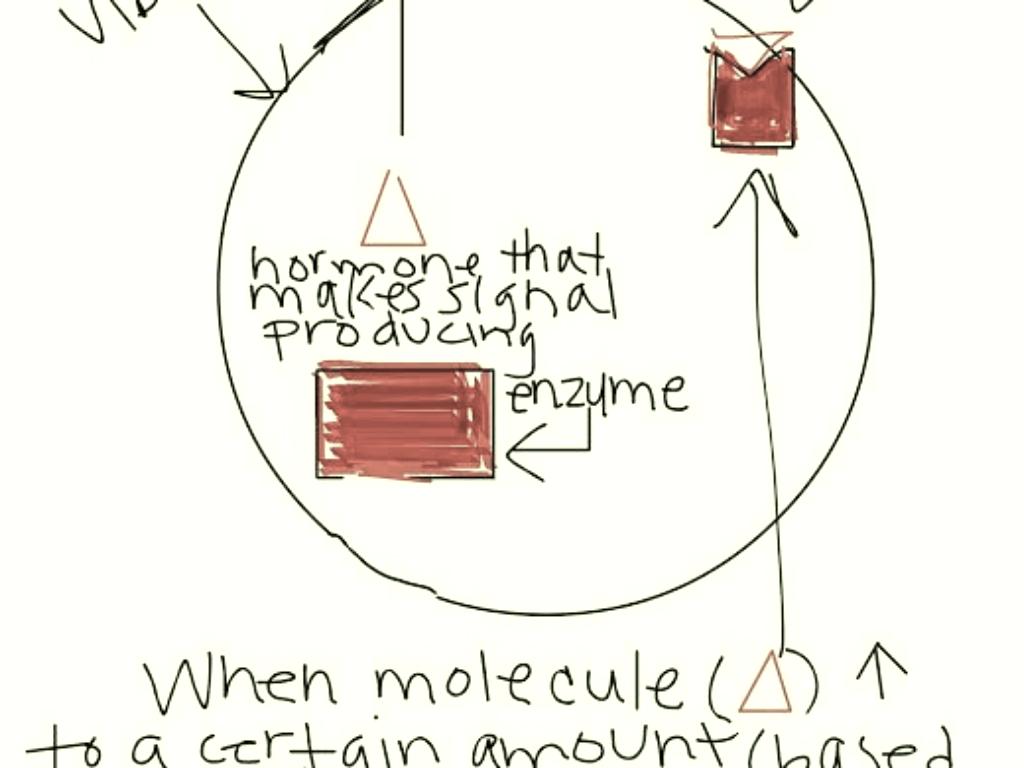 hormone that
makes signal
producing
enzyme
When molecule ( ) ↑
to a certain amount (based